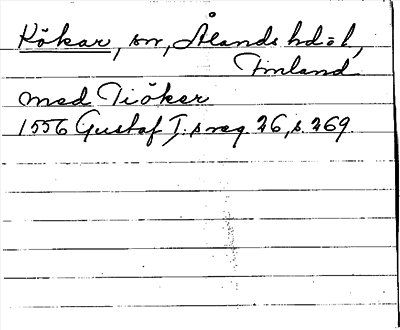 Kökar, sn, Ålands hd o l,
Finland
med Tiöker
1556 Gustaf I:s reg. 26, s. 269.